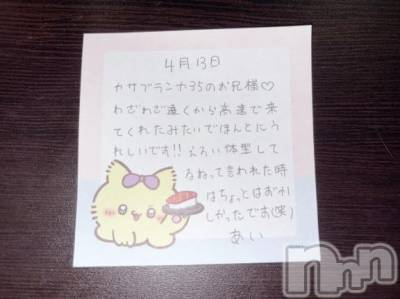 4月13日
カサブランカ35のお兄様♡
わざわざ遠くから高速で来
てくれたみたいでほんとにう
れしいです!!えろい体型して
るねって言われた時
はちょっとはずか
しかったです(笑)
あい
nnn